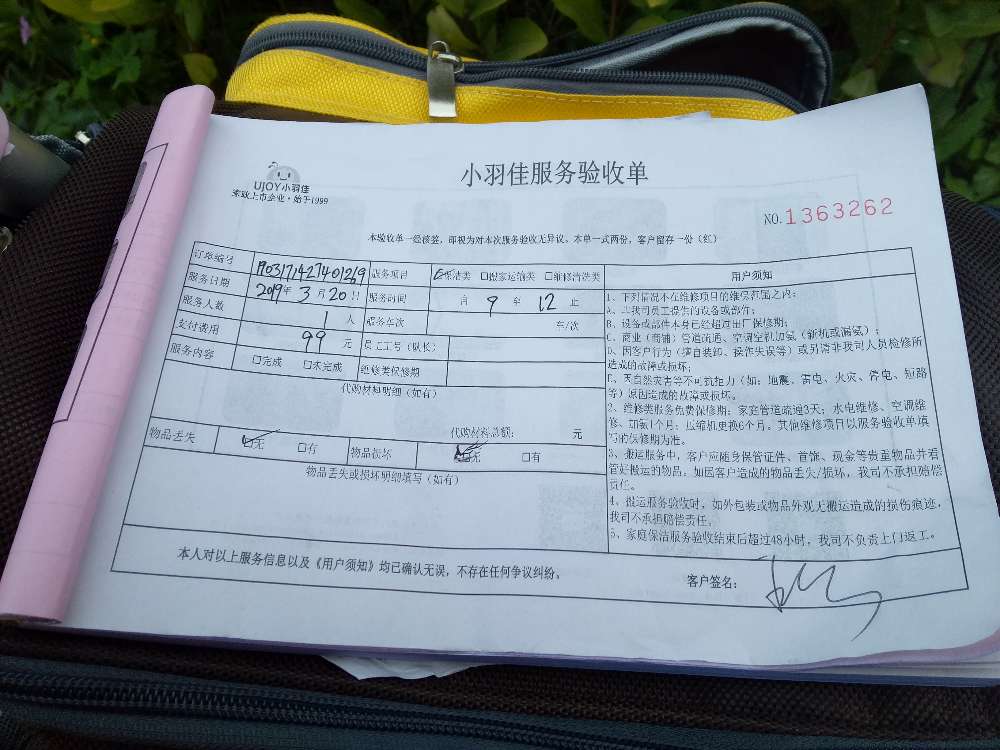 小羽佳服务验收单
UJOY小羽佳
家政上市企业·始于1999
NO.1363262
本验收单一经该签，即视为对本次服务验收无异议。本单一式两份，客户留存一份（红）
订单编号 服务项目 保洁类 □搬家运输类 □维修清洗类 用户须知
服务日期 2019年 3月20日 服务时间 自 9 至 12 止
服务人数 1 人 服务车次 车/次
支付费用 99 元 员工工号（队长）
服务内容 □完成 □未完成 维修类保修期
代购材料明细（如有）
代购材料总额： 元
物品丢失 □无 □有 物品损坏 □无 □有
物品丢失或损坏明细填写（如有）
1、下列情况不在维修项目的维保范围之内：
A、非我司员工提供的设备或部件；
B、设备或部件本身已经超过出厂保修期；
C、商业（商铺）管道疏通、空调空机加氨（新机或漏氨）；
D、因客户行为（擅自装卸、操作失误等）或另请非我司人员检修所
造成的故障或损坏；
E、天自然灾害等不可抗拒力（如：地震、雷电、火灾、停电、短路
等）原因造成的故障或损坏。
2、维修类服务免费保修期：家庭管道疏通3天；水电维修、空调维
修、加氨1个月；压缩机更换6个月。其他维修项目以服务验收单填
写的保修期为准。
3、搬运服务中，客户应随身保管证件、首饰、现金等贵重物品并看
管好搬运的物品，如因客户造成的物品丢失/损坏，我司不承担赔偿
责任。
4、搬运服务验收时，如外包装或物品外观无搬运造成的损伤痕迹，
我司不承担赔偿责任。
5、家庭保洁服务验收结束后超过48小时，我司不负责上门返工。
本人对以上服务信息以及《用户须知》均已确认无误，不存在任何争议纠纷。 客户签名：